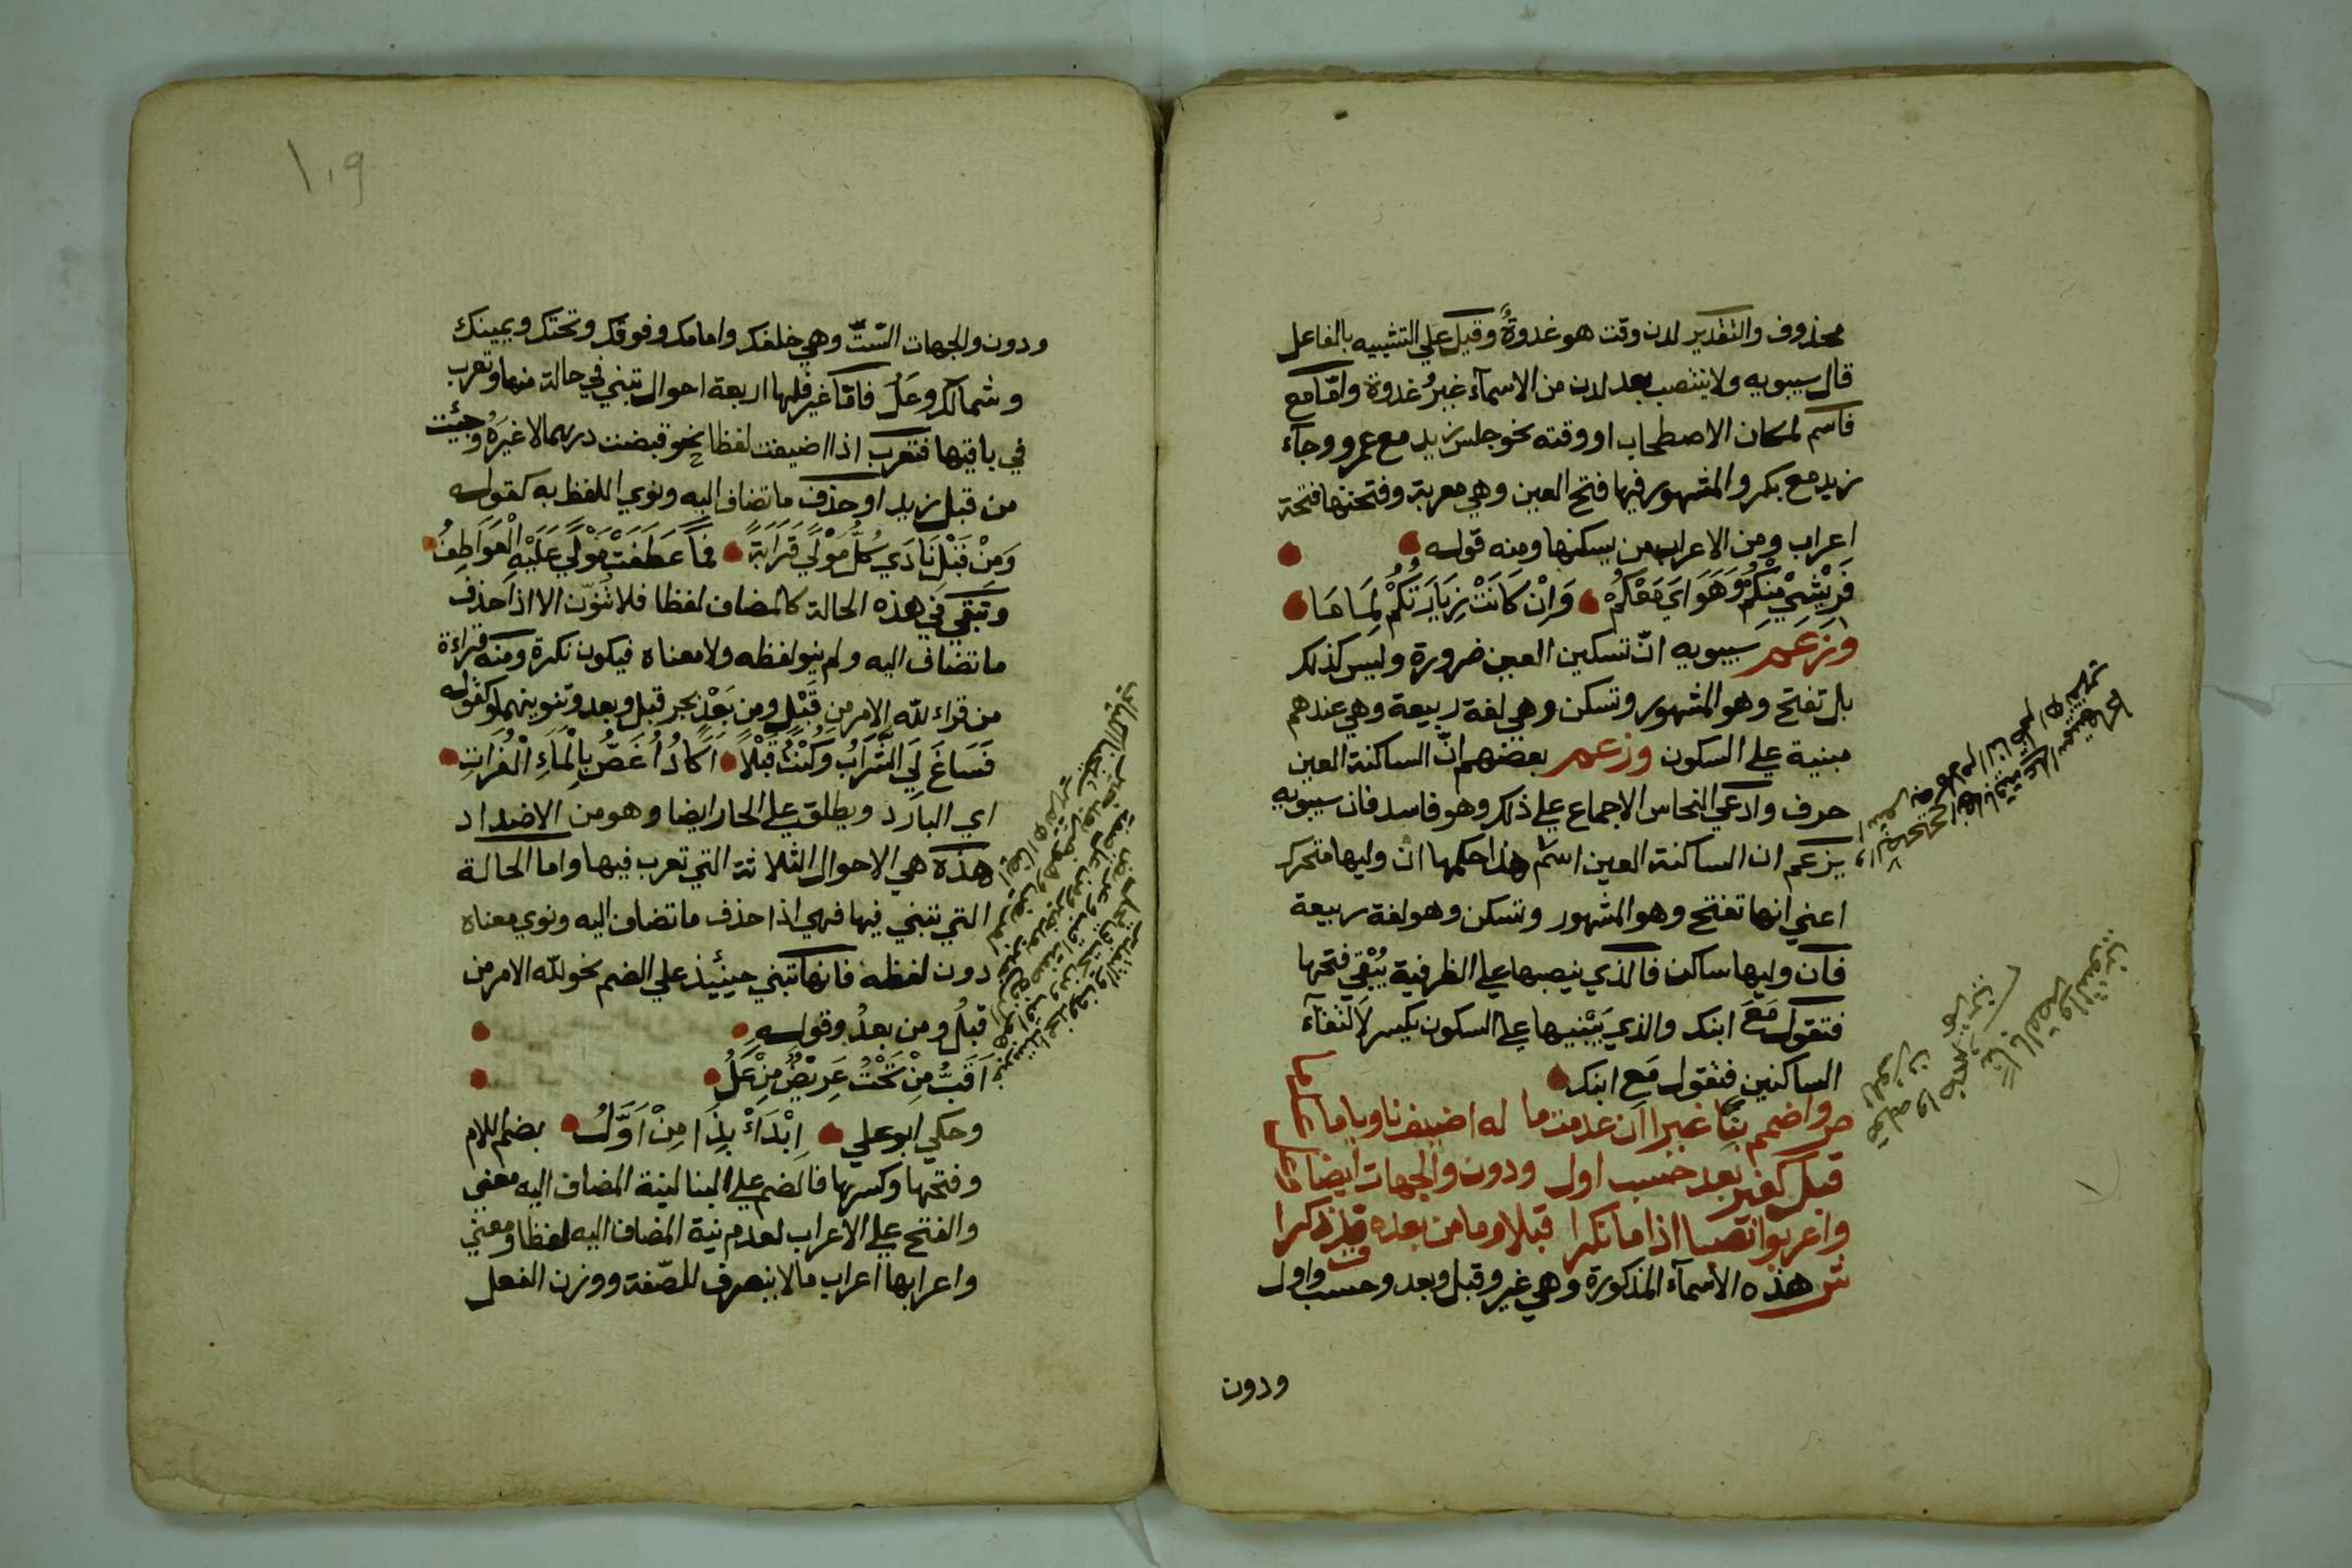 محذوف والتقدير لدن وقت هو غدوةٌ وقيل علي التشبيه بالفاعل
قال سيبويه ولا ينتصب بعد لدن من الاسمآء غيرُ غدوة وامّا مع
فاسم لمكان الاصطحاب او وقته نحو جلس زيد مع عمرو وجآء
زيد مع بكر والمشهور فيها فتح العين وهي معربة وفتحتها فتحة
اعراب ومن الاعراب من يسكنها ومنه قوله
فَرِيْشِيْ مِنْكُمُ وَهَوَايَ مَعْكُمُ وَاِنْ كَانَتْ زِيَارَتُكُمْ لِمَامَا
وزعم سيبويه انّ تسكين العين ضرورة وليس كذلك
بل تفتح وهو المشهور وتسكن وهي لغة ربيعة وهي عندهم
مبنية علي السكون وزعم بعضهم انّ الساكنة العين
حرف وادعي النحاس الاجماع علي ذلك وهو فاسد فان سيبويه
يزعم ان الساكنة العين اسم هذا حكمها ان وليها متحرك
اعني انها تفتح وهو المشهور وتسكن وهو لغة ربيعة
فان وليها ساكن فالذي ينصبها علي الظرفية يُبْقي فتحها
فتقول مَعَ ابنك والذي يَبْنيها علي السكون يكسر لالتقآء
الساكنين فتقول مَعِ ابنك
ص واضمم بنًا غيرا ان عدمت ما له اضيف ناويا ما عدما
قبل كغير بعد حسب اول ودون والجهات ايضا وعل
واعربوا نصبا اذا ما نكرا قبلا وما من بعده قد ذكرا
ش هذه الاسمآء المذكورة وهي غير وقبل وبعد وحسب واول
ودون
١٠٩
ودون والجهات الستّ وهي خلفك وامامك وفوقك وتحتك ويمينك
وشمالك وعَلُ فامّا غير فلها اربعة احوال تبني في حالة منها وتعرب
في باقيها فتعرب اذا اضيفت لفظا نحو قبضت درهما لا غيرَهُ وجئت
من قبل زيد او حذف ما تضاف اليه ونوي اللفظ به كقوله
وَمِنْ قَبْلِ نَادَي كُلُّ مَوْلًي قَرَابَةً فَمَا عَطَفَتْ مَوْلًي عَلَيْهِ الْعَوَاطِفُ
وتبقي في هذه الحالة كالمضاف لفظا فلا تنوّن الا اذا حذف
ما تضاف اليه ولم ينو لفظه ولا معناه فيكون نكرة ومنه قراءة
من قراء لله الامر من قَبْلٍ ومن بَعْدٍ بجر قبل وبعد وتنوينهما وكقوله
فَسَاغَ لِيَ الشَّرَابُ وَكُنْتُ قَبْلًا اَكَادُ اُغَصُّ بِالْمَآءِ الْفُرَاتِ
اي البارد ويطلق علي الحار ايضا وهو من الاضداد
هذه هي الاحوال الثلاثة التي تعرب فيها واما الحالة
التي تبني فيها فهي اذا حذف ما تضاف اليه ونوي معناه
دون لفظه فانها تبني حينئذ علي الضم نحو لله الامر من
قبلُ ومن بعدُ وقوله
اَقَبُّ مِنْ تَحْتُ عَرِيْضٌ مِنْ عَلُ
وحكي ابو علي اِبْدَاْ بِذَا مِنْ اَوَّلُ بضم اللام
وفتحها وكسرها فالضم علي البنا لنية المضاف اليه معني
والفتح علي الاعراب لعدم نية المضاف اليه لفظا ومعني
واعرابها اعراب مالا ينصرف للصّفة ووزن الفعل